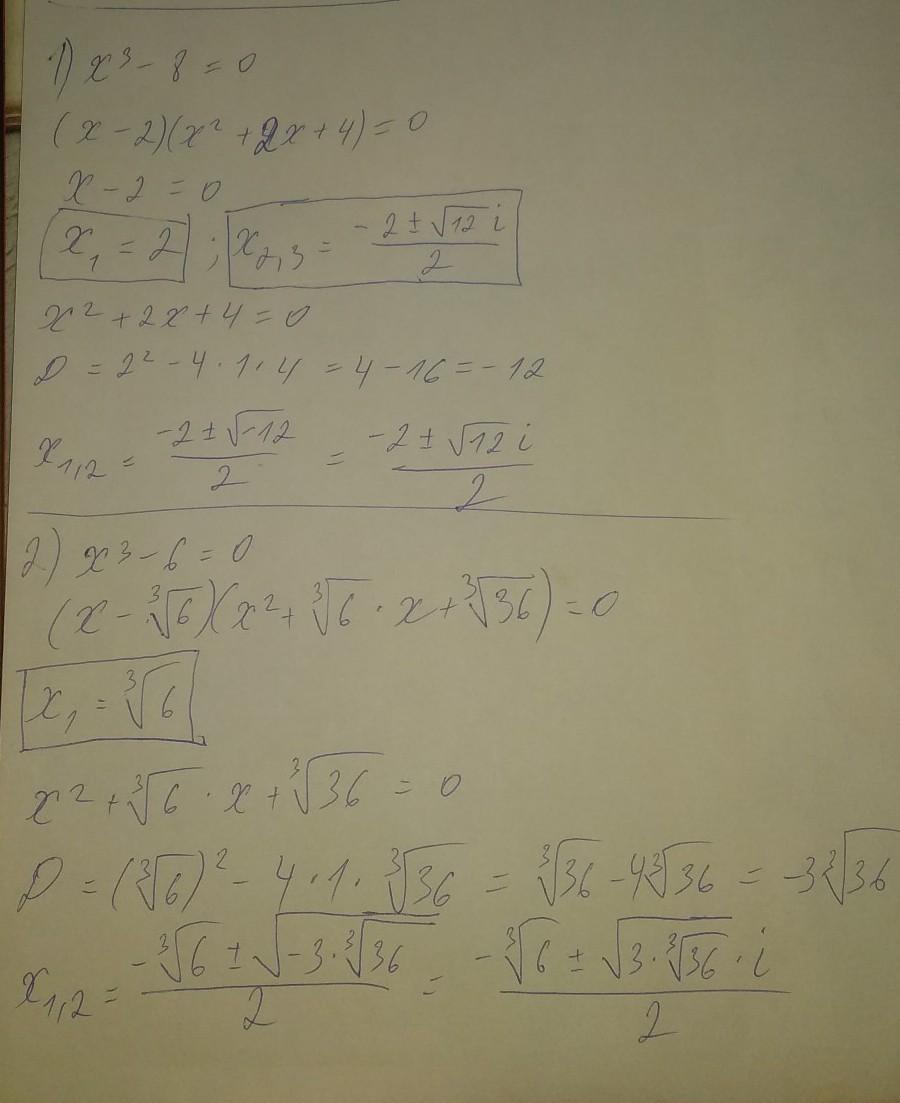 1) x³ - 8 = 0
(x - 2)(x² + 2x + 4) = 0
x - 2 = 0
x₁ = 2 ; x₂,₃ = (-2 ± √12 i)/2
x² + 2x + 4 = 0
D = 2² - 4 · 1 · 4 = 4 - 16 = -12
x₁,₂ = (-2 ± √-12)/2 = (-2 ± √12 i)/2
2) x³ - 6 = 0
(x - ∛6)(x² + ∛6 · x + ∛36) = 0
x₁ = ∛6
x² + ∛6 · x + ∛36 = 0
D = (∛6)² - 4 · 1 · ∛36 = ∛36 - 4∛36 = -3∛36
x₁,₂ = (-∛6 ± √(-3 · ∛36))/2 = (-∛6 ± √(3 · ∛36) · i)/2